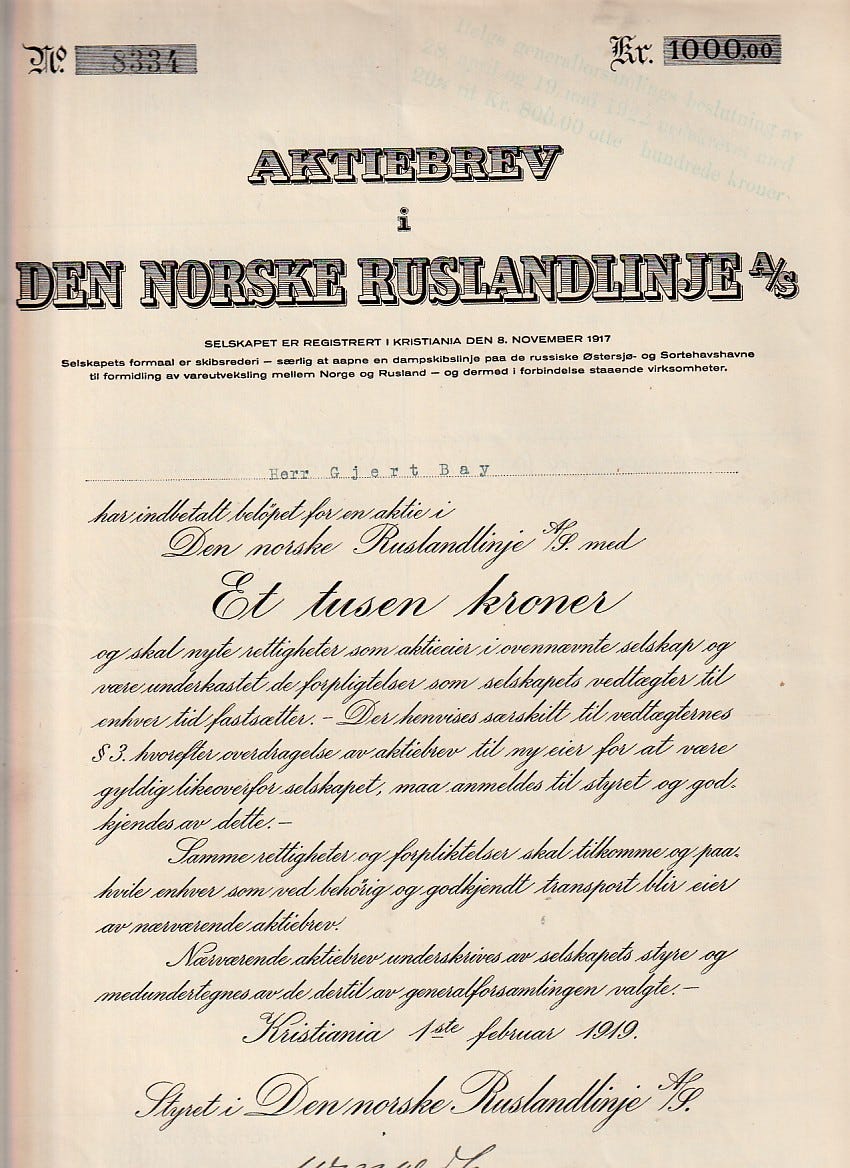 No. 8334
Kr. 1000,00
Ifølge generalforsamlings beslutning av
28. april og 19. mai 1922 nedskrevet med
20% til Kr. 800.00 otte hundrede kroner
AKTIEBREV
i
DEN NORSKE RUSLANDLINJE A/S
SELSKAPET ER REGISTRERT I KRISTIANIA DEN 8. NOVEMBER 1917
Selskapets formaal er skibsrederi — særlig at aapne en dampskibslinje paa de russiske Østersjø- og Sortehavshavne
til formidling av vareutveksling mellem Norge og Rusland — og dermed i forbindelse staaende virksomheter.
Herr Gjert Bay
har indbetalt beløpet for en aktie i
Den norske Ruslandlinje A/S. med
Et tusen kroner
og skal nyte rettigheter som aktieeier i ovennævnte selskap og
være underkastet de forpligtelser som selskapets vedtægter til
enhver tid fastsætter. — Der henvises særskilt til vedtægternes
§ 3. hvorefter overdragelse av aktiebrev til ny eier for at være
gyldig likeoverfor selskapet, maa anmeldes til styret og god-
kjendes av dette. —
Samme rettigheter og forpliktelser skal tilkomme og paa-
hvile enhver som ved behørig og godkjendt transport blir eier
av nærværende aktiebrev.
Nærværende aktiebrev underskrives av selskapets styre og
medundertegnes av de dertil av generalforsamlingen valgte. —
Kristiania 1ste februar 1919.
Styret i Den norske Ruslandlinje A/S.